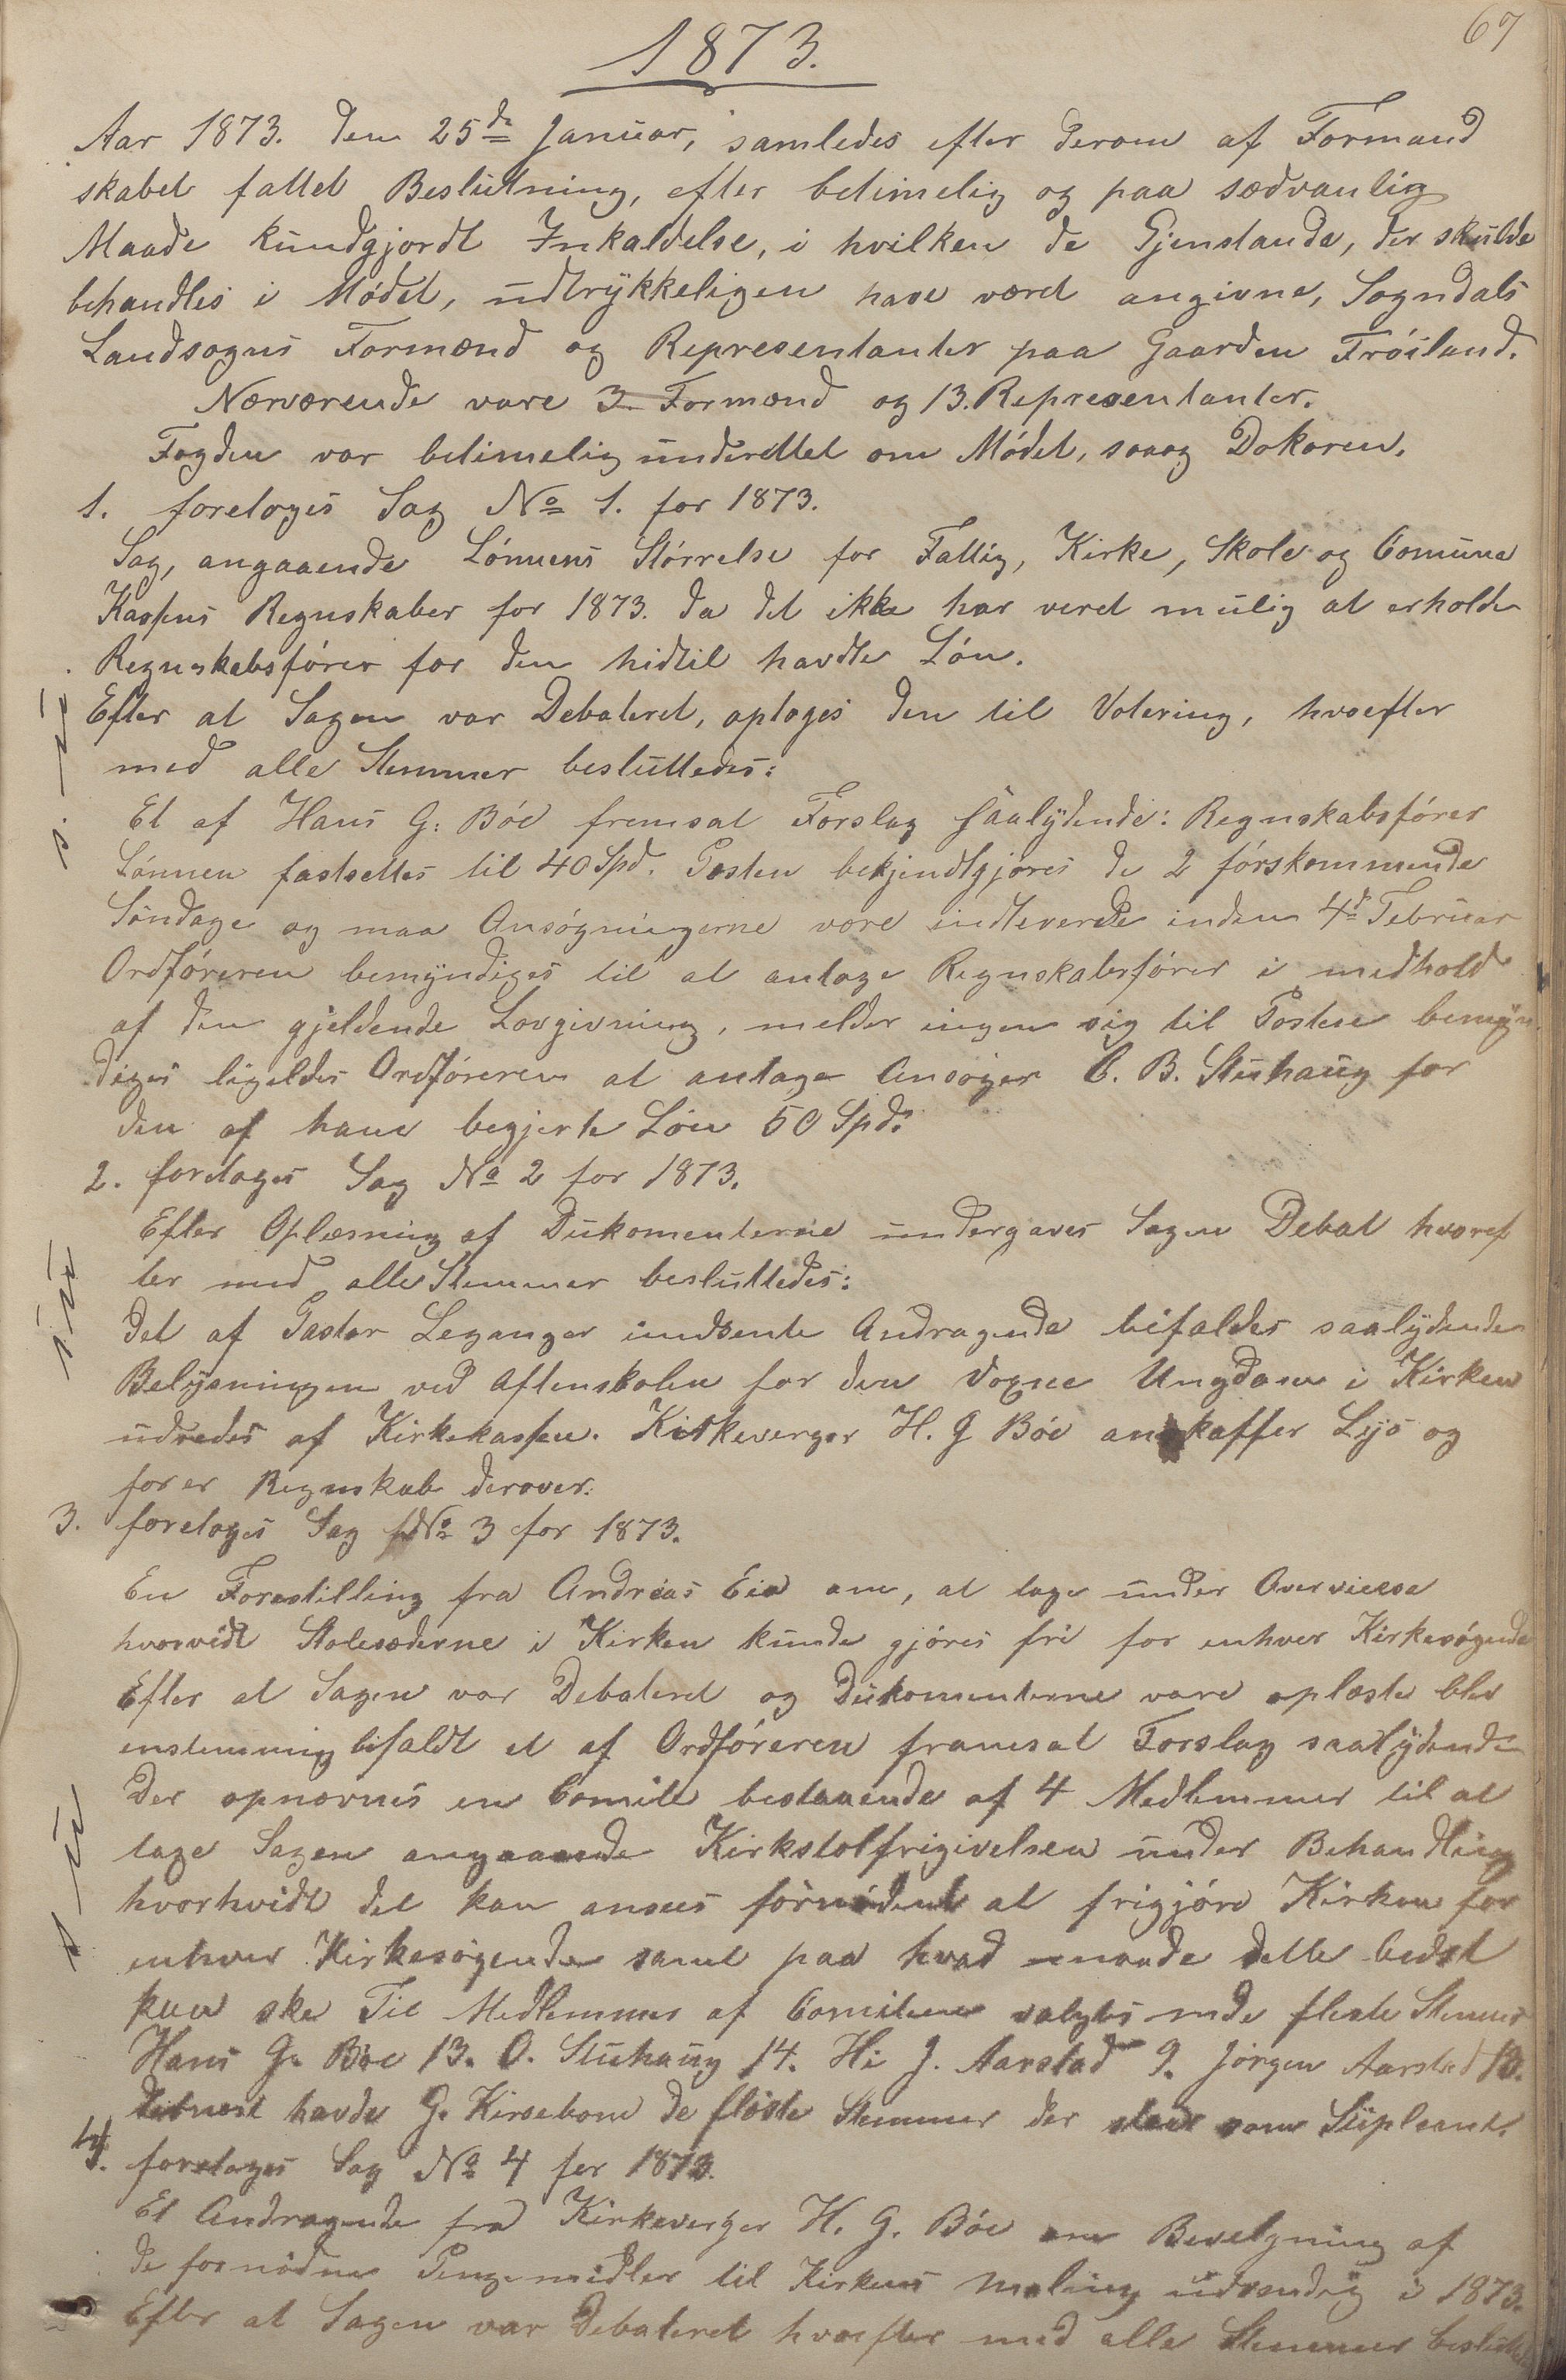 67
1873.
Aar 1873. den 25de Januar, samledes efter derom af Formand
skabet fattet Beslutning, efter betimelig og paa sædvanlig
Maade kundgjordt Inkaldelse, i hvilken de Gjenstande, der skulde
behandles i Mødet, udtrykkeligen have været angivne, Sogndals
Landsogns Formænd og Representanter paa Gaarden Frøiland.
Nærværende vare 3 Formænd og 13. Representanter.
Fogden var betimelig underettet om Mødet, saaog Doktoren.
1. foretoges Sag No 1. for 1873.
Sag, angaaende Lønnens Størrelse for Fattig, Kirke, Skole og Comune
Kassens Regnskaber for 1873. da det ikke har veret mulig at erholde
Regnskabsfører for den hidtil havdte Løn.
Efter at Sagen var Debateret, optoges den til Votering, hvoefter
med alle Stemmer besluttedes:
Et af Hans G: Bøe fremsat Forslag saalydende: Regnskabsfører
Lønnen fastsettes til 40 Spd. Posten bekjendtgjøres de 2 førskommende
Søndage og maa Ansøgningerne være indleverede inden 4de Februar
Ordføreren bemyndiges til at antage Regnskabsfører i medhold
af den gjeldende Lovgivning, melder ingen sig til Posten bemyn
diges ligeldes Ordføreren at antage Ansøger O. B. Stuhaug for
den af ham begjerte Løn 50 Spd.
2. foretoges Sag No 2 for 1873.
Efter Oplæsning af Dukomenterne undergaves Sagen Debat hvoref
ter med alle Stemmer besluttedes:
Det af Pastor Leganger indsente Andragende bifaldes saalydende
Belysningen ved Aftenskolen for den Voxne Ungdom i Kirken
udredes af Kirkekassen. Kirkeverger H. G Bøe anskaffer Lys og
fører Regnskab derover.
3. foretoges Sag No 3 for 1873.
En Forestilling fra Andreas Eia om, at tage under Overvielse
hvorvidt Stolesæderne i Kirken kunde gjøres fri for enhver Kirkesøgende
Efter at Sagen var Debateret og Dukomenterne vare oplæste blev
enstemmig bifaldt et af Ordføreren framsat Forslag saalydende
Der opnævnes en Comite bestaaende af 4 Medlemmer til at
tage Sagen angaaende Kirkstolfrigivelsen under Behandling
hvorhvidt det kan ansees fornødent at frigjøre Kirken for
enhver Kirkesøgende samt paa hvad maade dette bedst
kan ske Til Medlemmer af Comiteen valgtes mde fleste Stemmer
Hans G. Bøe 13. O. Stuhaug 14. H: J. Aarstad 9. Jørgen Aarstad 10.
dernest havde G. Kirsebom de fleste Stemmer der staar som Supleant.
4. foretoges Sag No 4 for 1873.
Et Andragende fra Kirkeverger H. G. Bøe om Bevelgning af
de fornødne Pengemidler til Kirkens Maling udvendig i 1873.
Efter at Sagen var Debateret hvoefter med alle Stemmer beslutte